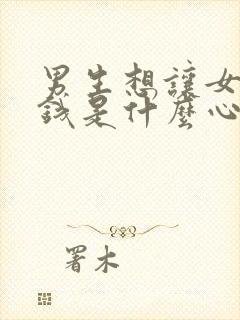 男生想讓女
錢是什麼心
署木